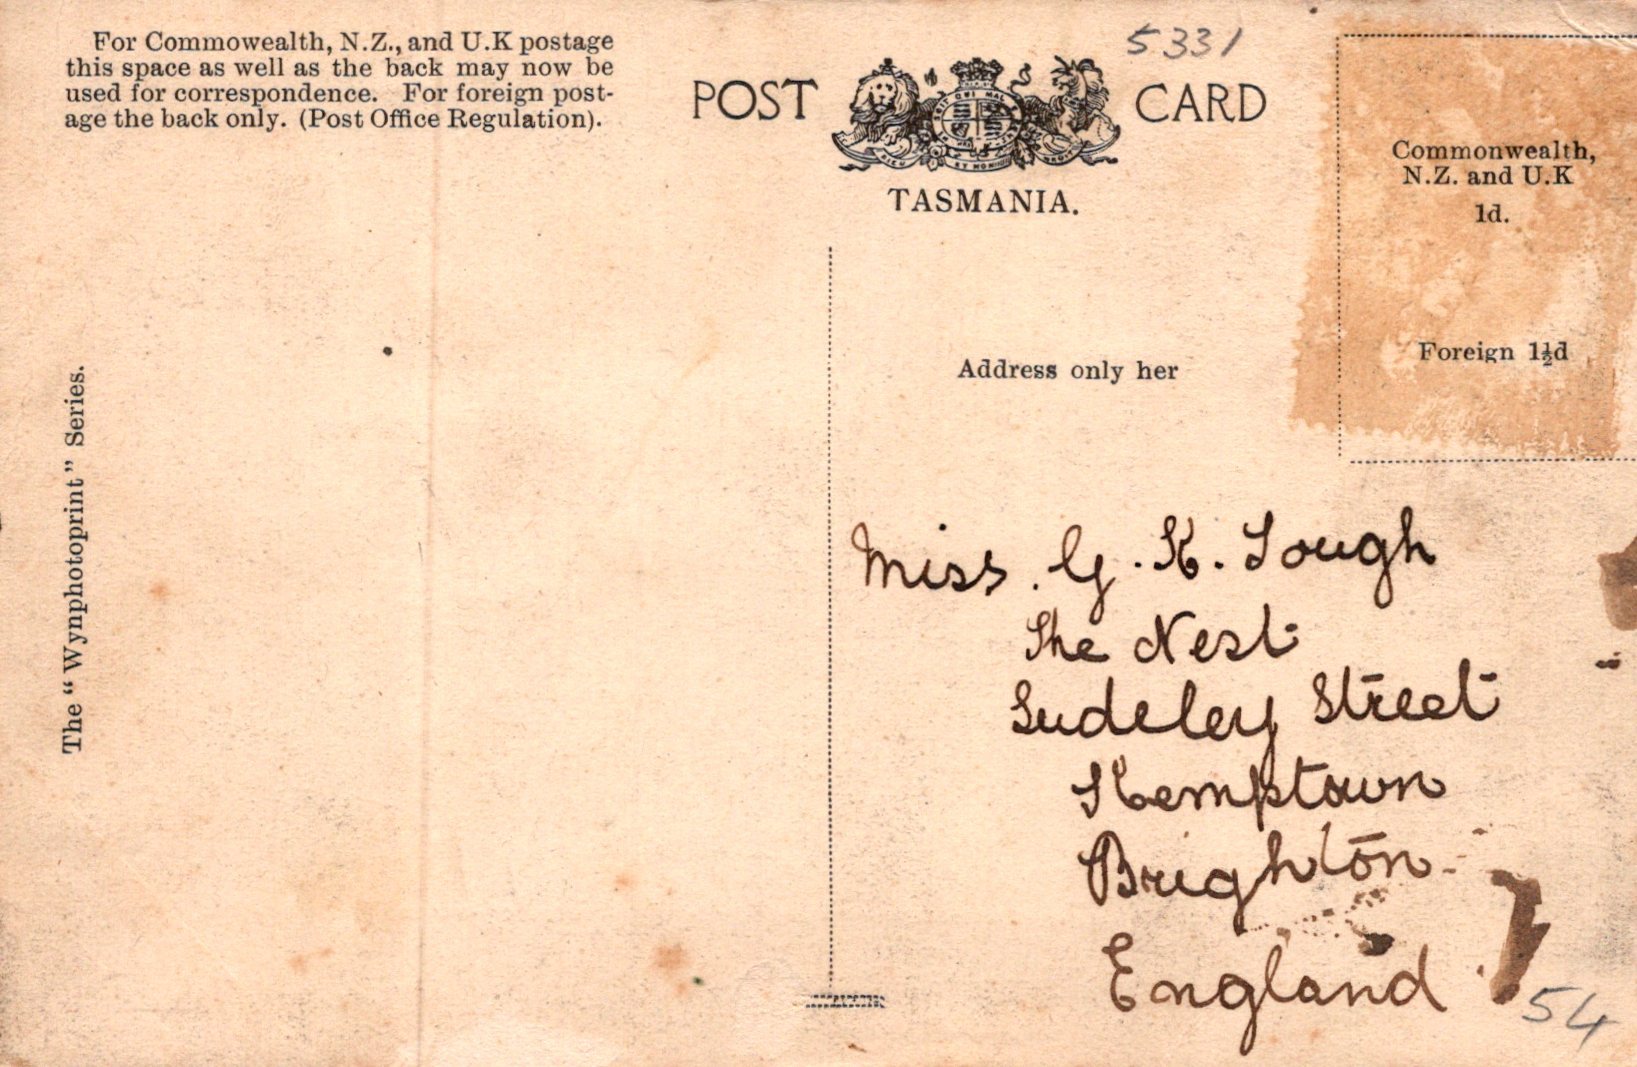 For Commowealth, N.Z., and U.K postage
this space as well as the back may now be
used for correspondence. For foreign post-
age the back only. (Post Office Regulation).
POST CARD
5331
TASMANIA.
Commonwealth,
N.Z. and U.K
1d.
Foreign 1½d
Address only her
The "Wynphotoprint" Series.
Miss. G. K. Tough
The Nest
Sudeley Street
Kemptown
Brighton
England
54